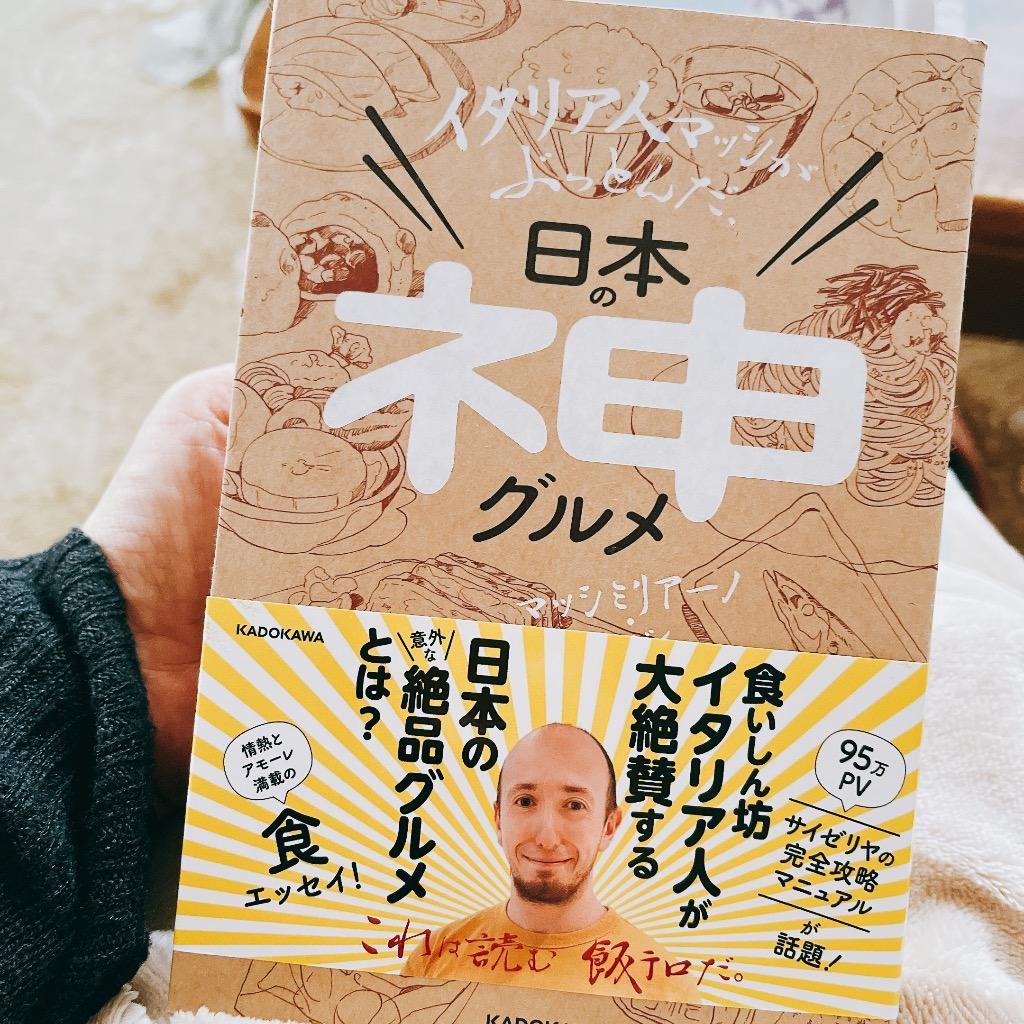 イタリア人マッシが
ぶっとんだ、
日本の
神
グルメ
マッシミリアーノ
KADOKAWA
食いしん坊
イタリア人が
大絶賛する
日本の
意外な
絶品グルメ
とは?
95万
PV
サイゼリヤの
完全攻略
マニュアル
が
話題!
情熱と
アモーレ
満載の
食
エッセイ!
これは読む 飯テロだ。